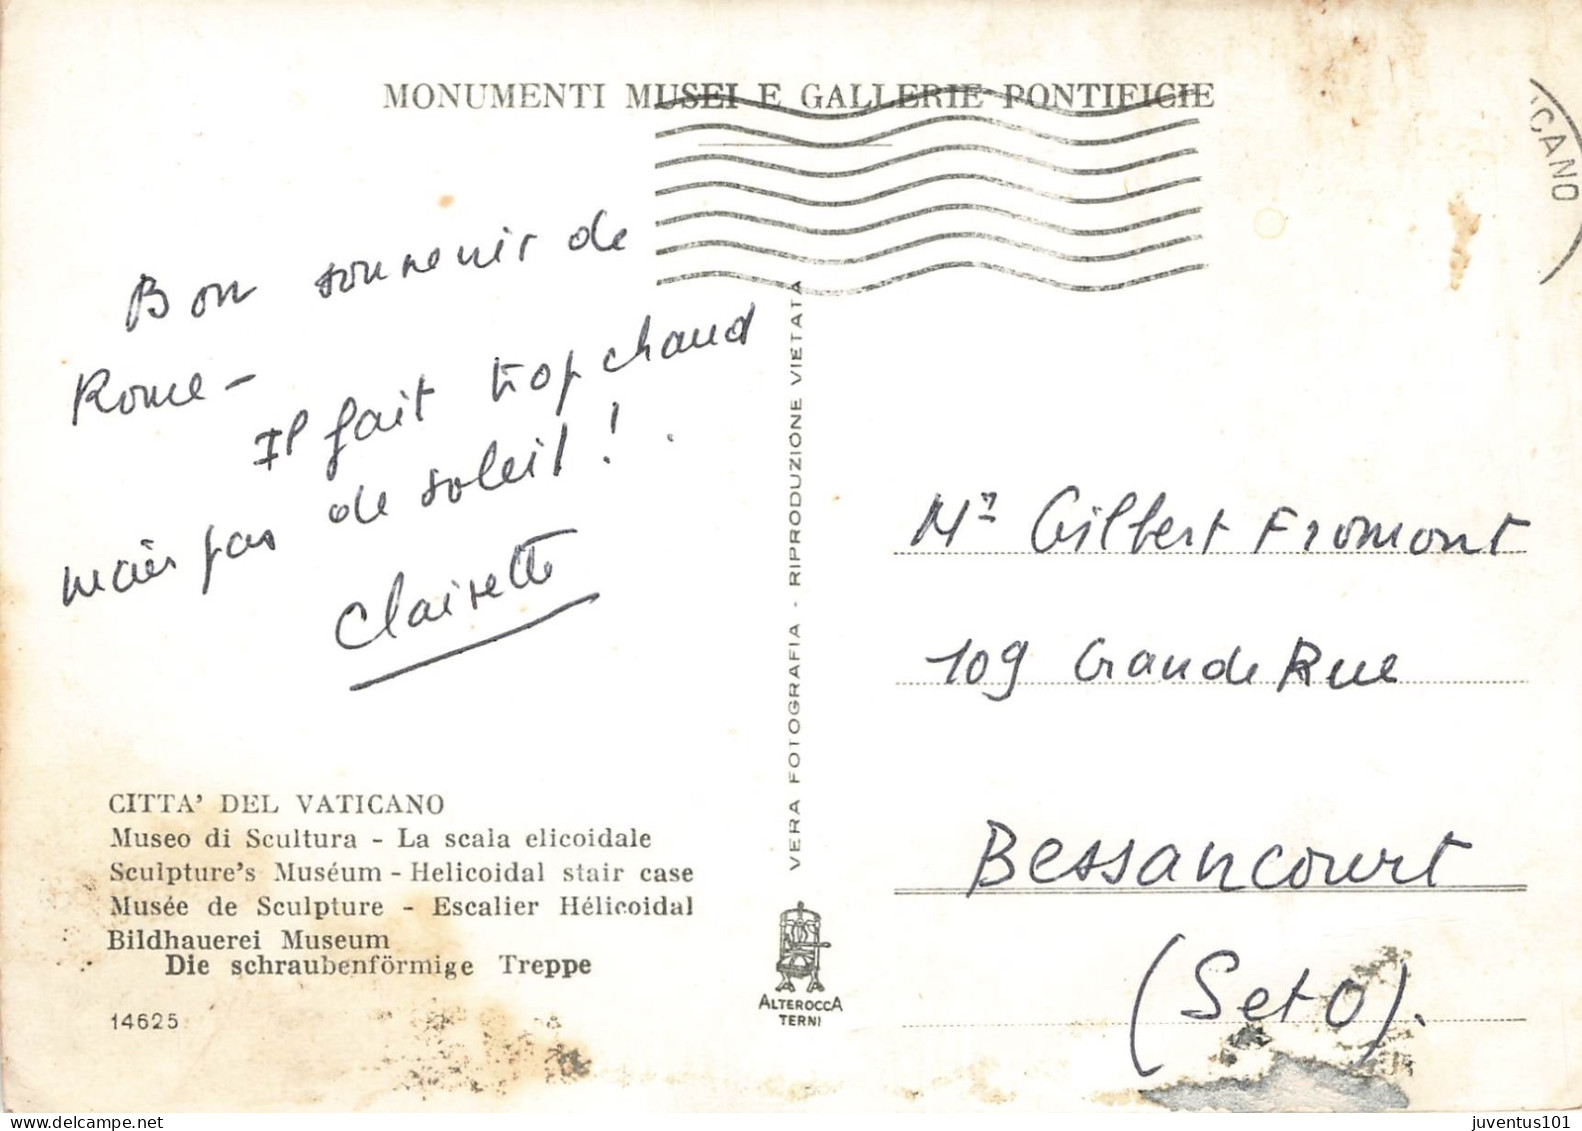 MONUMENTI MUSEI E GALLERIE PONTIFICIE
ICANO
Bon souvenir de
Rome -
Il fait trop chaud
mais pas de soleil !
Clairette
CITTA' DEL VATICANO
Museo di Scultura - La scala elicoidale
Sculpture's Muséum - Helicoidal stair case
Musée de Sculpture - Escalier Hélicoidal
Bildhauerei Museum
Die schraubenförmige Treppe
14625
VERA FOTOGRAFIA - RIPRODUZIONE VIETATA
ALTEROCCA
TERNI
Mr Gilbert Fromont
109 Grande Rue
Bessancourt
(Set O).
delcampe.net
juventus101